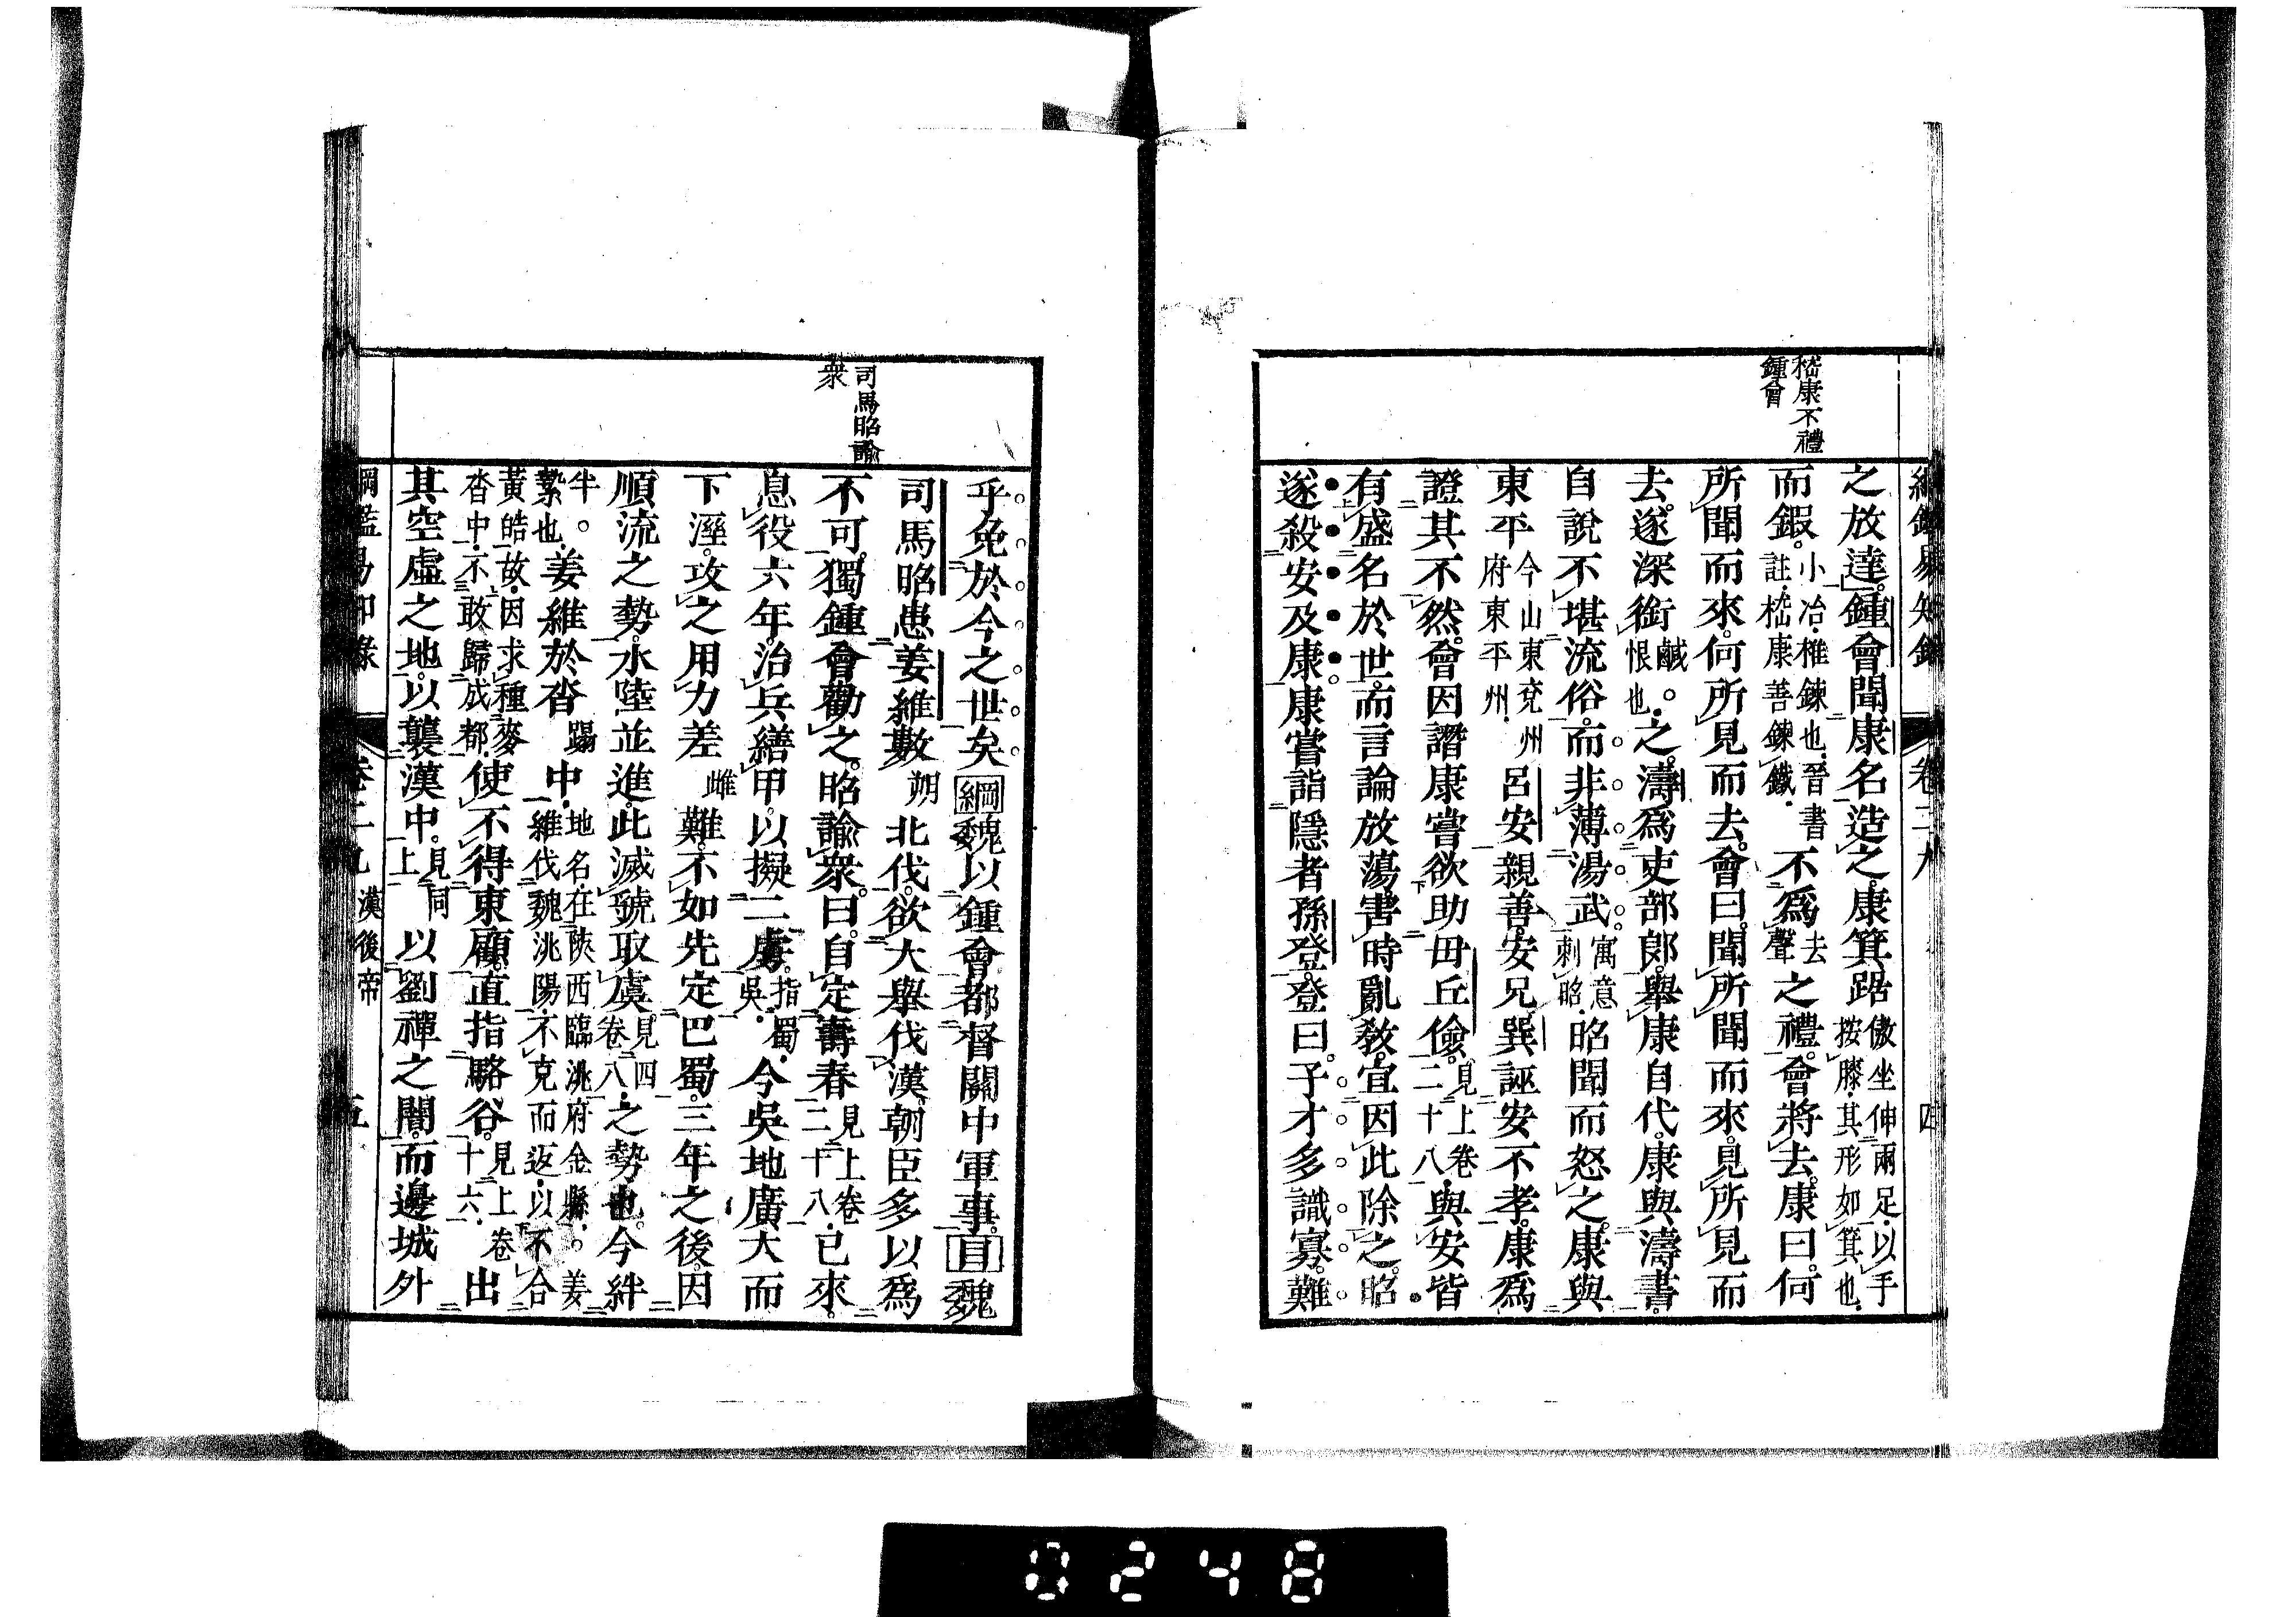 嵇康不禮
鍾會
之放達。鍾會聞康名造之。康箕踞傲坐伸兩足、以手按膝、其形如箕也、
而鍜。小冶、椎鍊也、晉書註、嵇康善鍊鐵、不爲去聲之禮。會將去。康曰。何
所聞而來。何所見而去。會曰。聞所聞而來。見所見而
去。遂深銜鹹。恨也、之。濤爲吏部郞。舉康自代。康與濤書。
自說不堪流俗。而非薄湯武。寓意刺昭、昭聞而怒之。康與
東平今山東兗州府東平州、呂安親善。安兄巽誣安不孝。康爲
證其不然。會因譖康嘗欲助毌丘儉。見上卷二十八、與安皆
有盛名於世。而言論放蕩。害時亂教。宜因此除之。昭
遂殺安及康。康嘗詣隱者孫登。登曰。子才多識寡。難
四
司馬昭諭
衆
乎免於今之世矣綱魏以鍾會都督關中軍事。目魏
司馬昭患姜維數朔北伐。欲大舉伐漢。朝臣多以爲
不可。獨鍾會勸之。昭諭衆。曰。自定壽春見上卷二十八、已來。
息役六年。治兵繕甲。以擬二虜。指蜀、吳、今吳地廣大而
下溼。攻之用力差雌難。不如先定巴蜀。三年之後。因
順流之勢。水陸並進。此滅虢取虞。見四卷八、之勢也。今絆
半。縶也、姜維於沓蹋中、地名、在陝西臨洮府金縣。。姜維伐魏洮陽、不克而返、以不合
黃皓故、因求種麥沓中、不敢歸成都、使不得東顧。直指駱谷。見上卷十六、出
其空虛之地。以襲漢中。見同上、以劉禪之闇。而邊城外
綱鑑易知錄 卷二九 漢後帝 五
0248